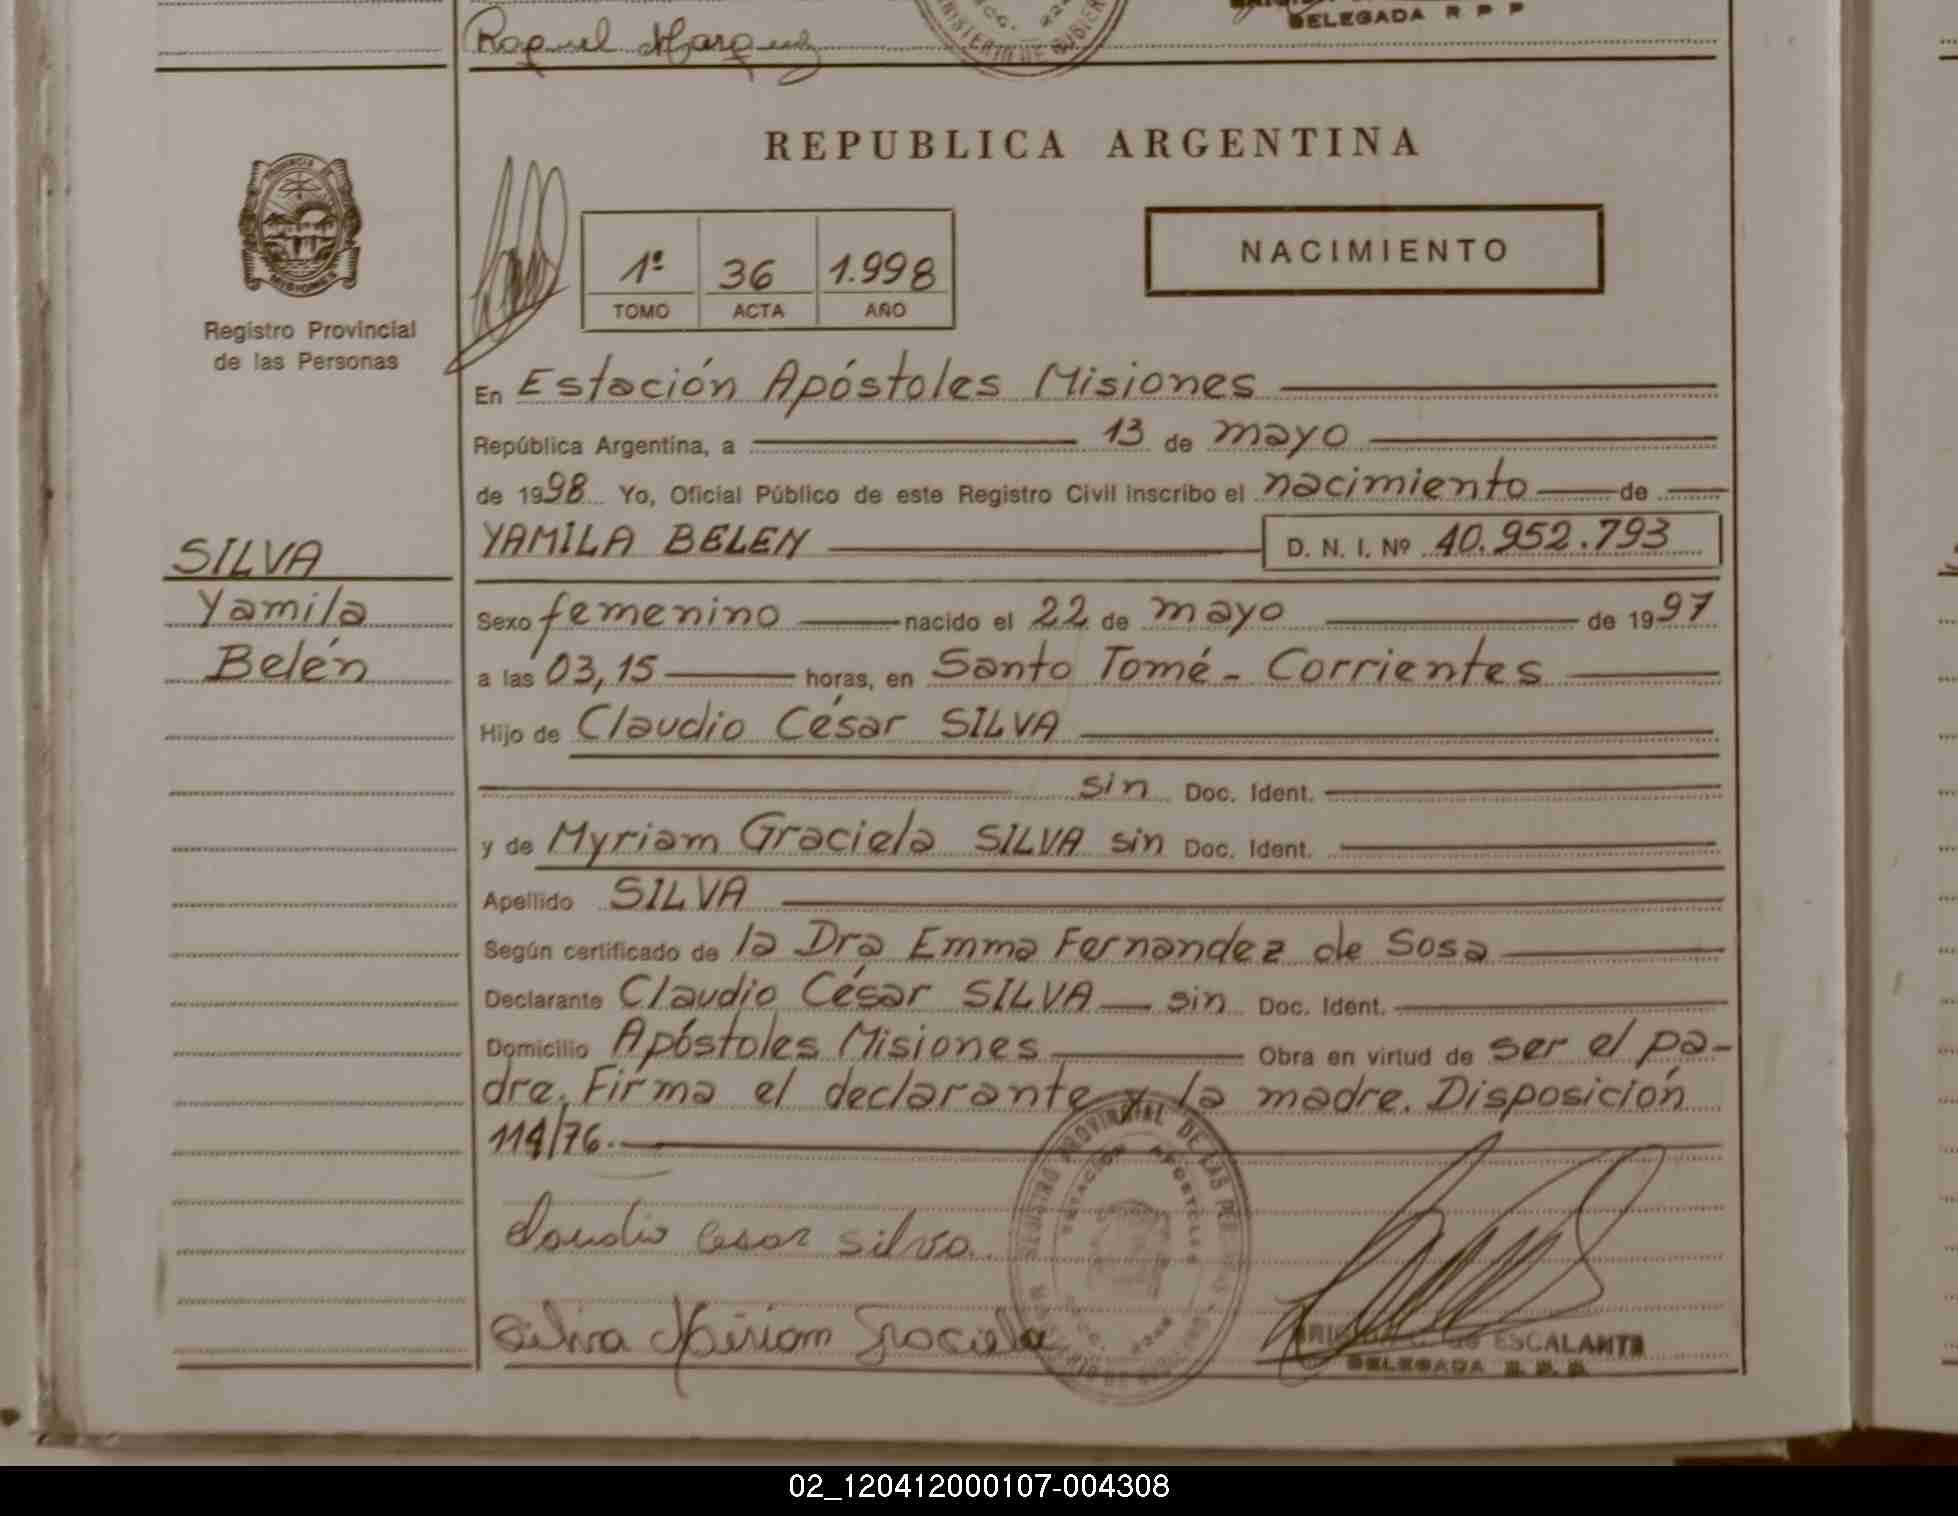 Raquel Marquez
MINISTERIO DE GOBIER
DELEGADA R P P
REPUBLICA ARGENTINA
PROVINCIA DE
MISIONES
Registro Provincial
de las Personas
1º 36 1.998
TOMO ACTA AÑO
NACIMIENTO
En Estación Apóstoles Misiones
República Argentina, a 13 de mayo
de 1998 Yo, Oficial Público de este Registro Civil inscribo el nacimiento de
YAMILA BELEN D. N. I. Nº 40.952.793
SILVA
Yamila
Belén
Sexo femenino nacido el 22 de mayo de 1997
a las 03,15 horas, en Santo Tomé - Corrientes
Hijo de Claudio César SILVA
sin Doc. Ident.
y de Myriam Graciela SILVA sin Doc. Ident.
Apellido SILVA
Según certificado de la Dra Emma Fernandez de Sosa
Declarante Claudio César SILVA sin Doc. Ident.
Domicilio Apóstoles Misiones Obra en virtud de ser el pa-
dre. Firma el declarante y la madre. Disposición
114/76.
Claudio Cesar Silva
Silva Miriam Graciela
REGISTRO PROVINCIAL DE LAS PERSONAS
ESTACION APOSTOLES
ESCALANTE
DELEGADA R. P. P.
02_120412000107-004308